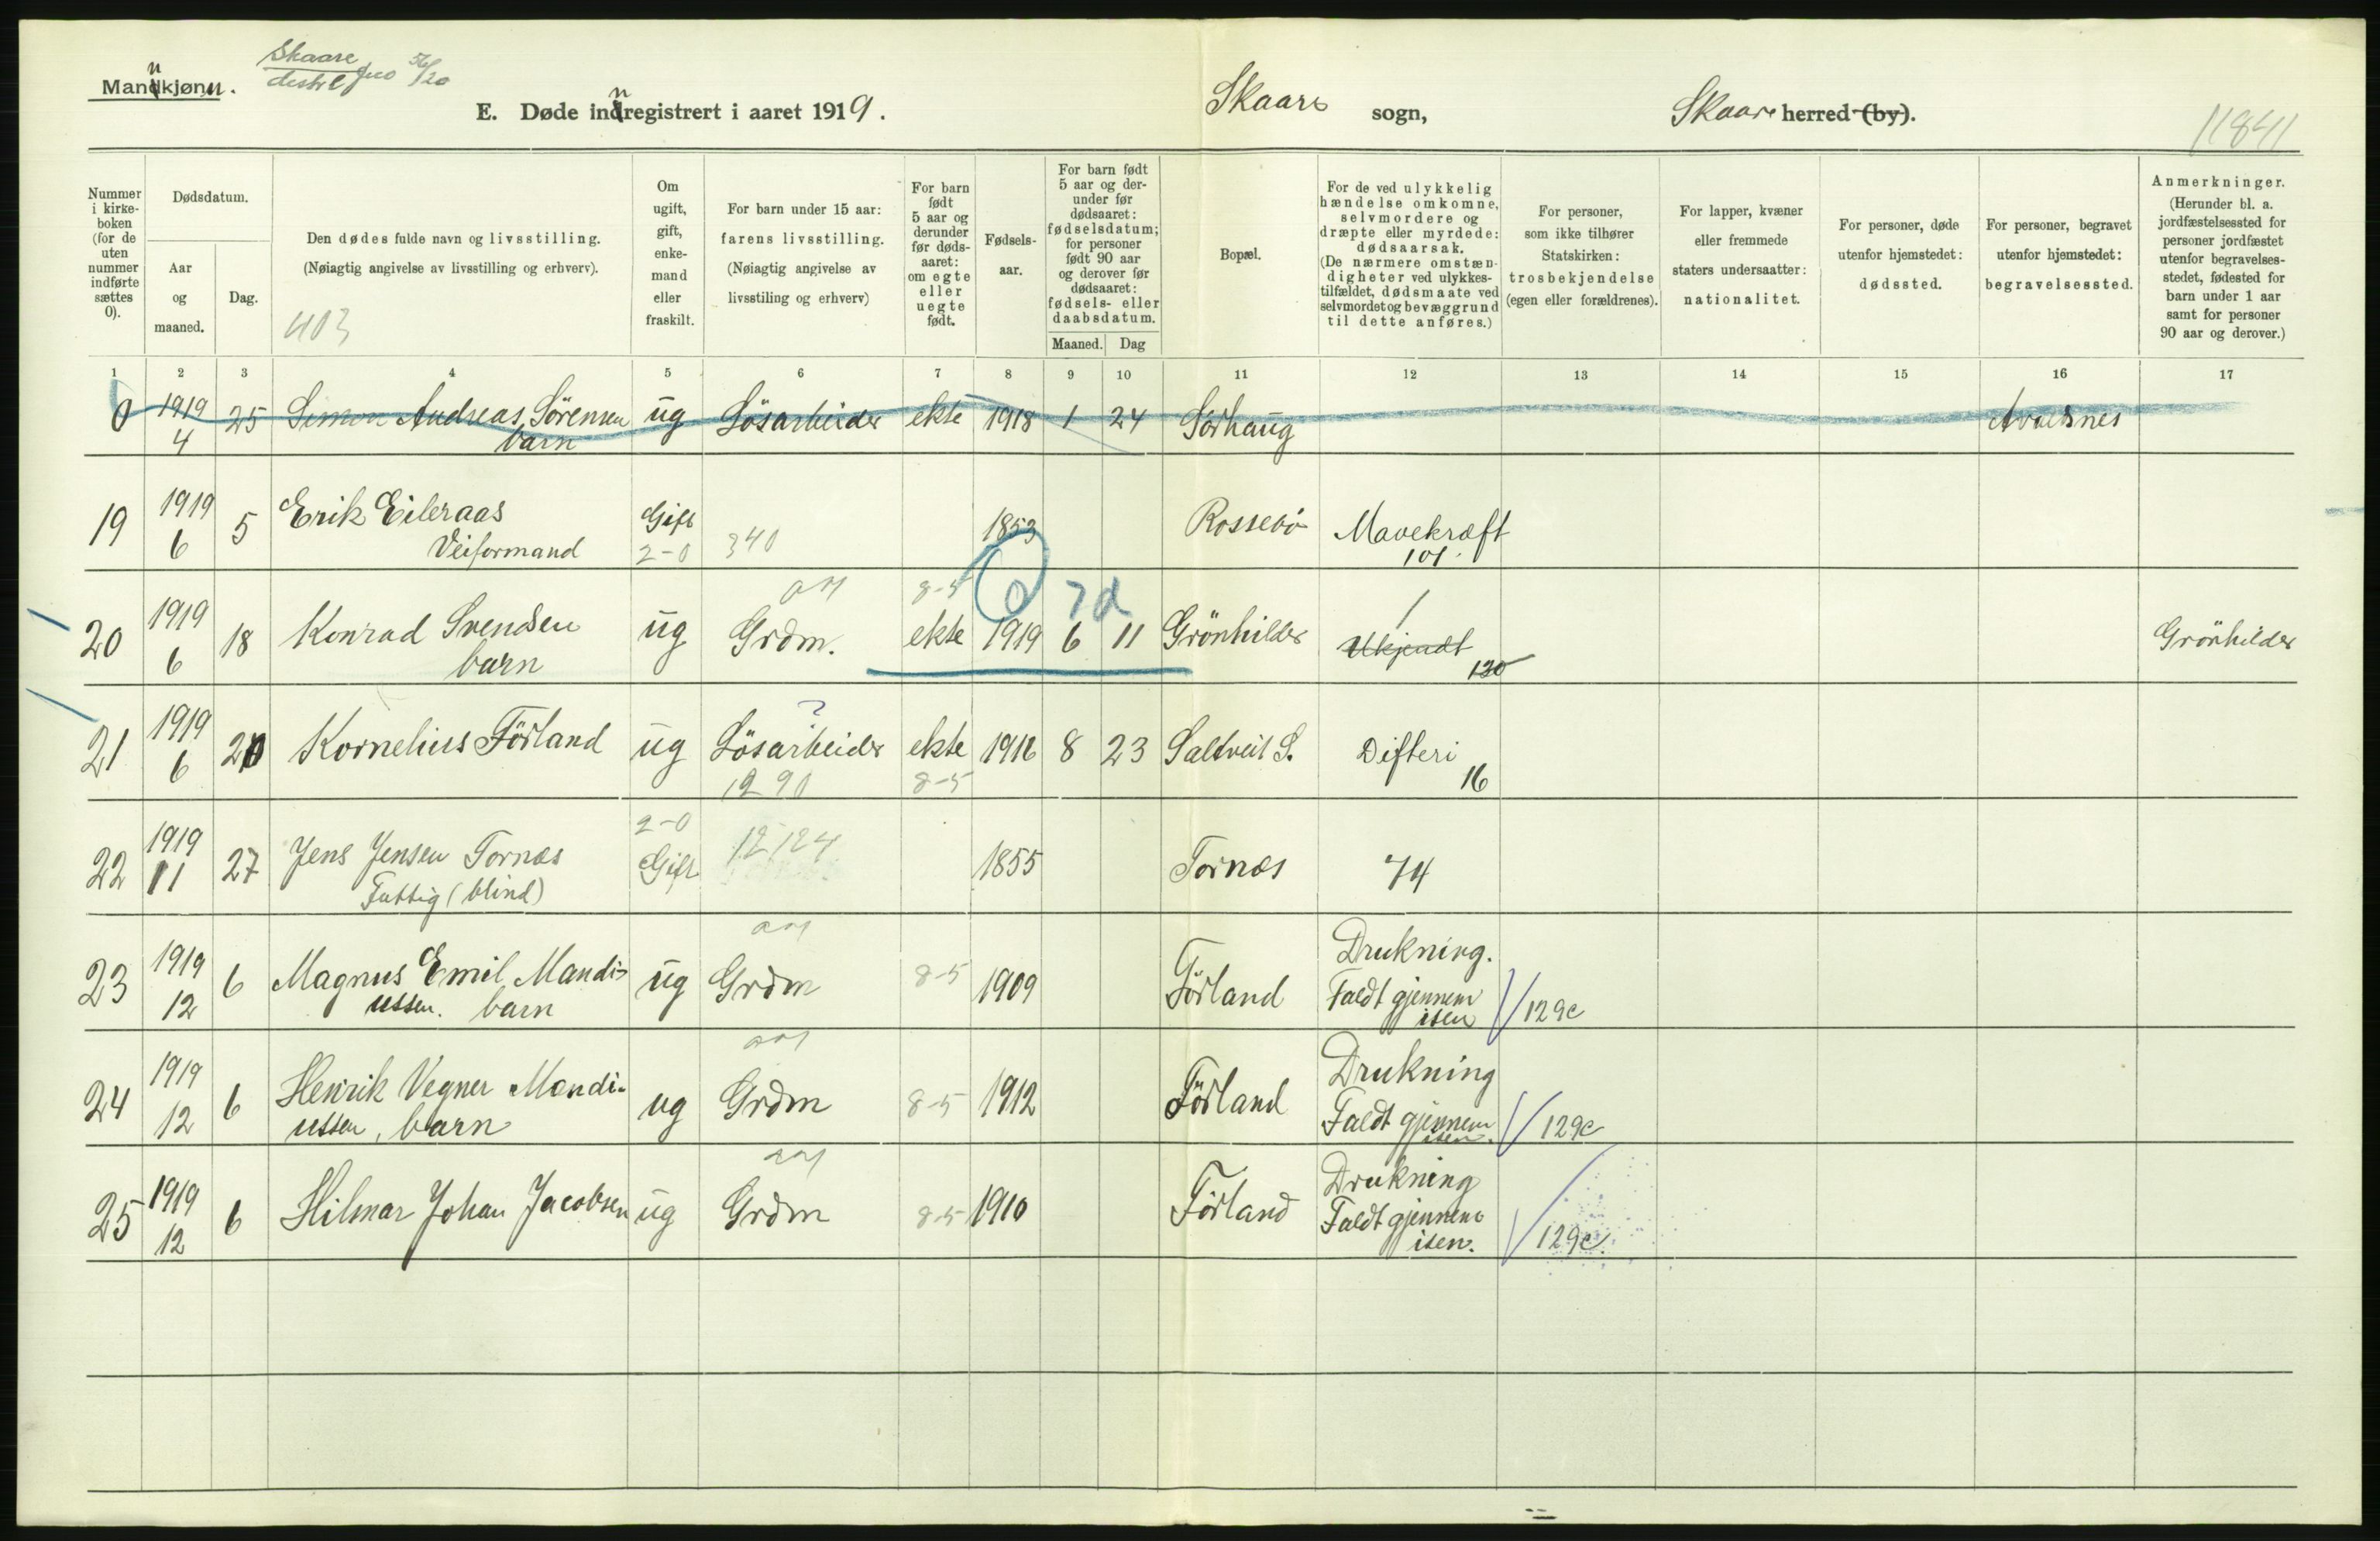 Mannkjønn.
Skaare
E. Døde innregistrert i aaret 1919.
Skaare sogn,
Skaare herred (by).
11841
Nummer i kirkeboken (for de uten nummer indførte sættes 0).
Dødsdatum.
Aar og maaned.
Dag.
Den dødes fulde navn og livsstilling.
(Nøiagtig angivelse av livsstilling og erhverv).
403
Om ugift, gift, enkemand eller fraskilt.
For barn under 15 aar: farens livsstilling.
(Nøiagtig angivelse av livsstiling og erhverv)
For barn født 5 aar og derunder før dødsaaret: om egte eller uegte født.
Fødselsaar.
For barn født 5 aar og derunder før dødsaaret: fødselsdatum; for personer født 90 aar og derover før dødsaaret: fødsels- eller daabsdatum.
Maaned. Dag
Bopæl.
For de ved ulykkelig hændelse omkomne, selvmordere og dræpte eller myrdede: dødsaarsak.
(De nærmere omstændigheter ved ulykkestilfældet, dødsmaate ved selvmordet og bevæggrund til dette anføres.)
For personer, som ikke tilhører Statskirken: trosbekjendelse (egen eller forældrenes).
For lapper, kvæner eller fremmede staters undersaatter: nationalitet.
For personer, døde utenfor hjemstedet: dødssted.
For personer, begravet utenfor hjemstedet: begravelsessted.
Anmerkninger.
(Herunder bl. a. jordfæstelsessted for personer jordfæstet utenfor begravelsesstedet, fødested for barn under 1 aar samt for personer 90 aar og derover.)
1 2 3 4 5 6 7 8 9 10 11 12 13 14 15 16 17
0 1919 4 25 Simon Andreas Sörensen barn ug Lösarbeider ekte 1918 1 24 Sörhaug Avaldsnes
19 1919 6 5 Erik Eileraas Veiformand Gift 2-0 340 1853 Rossebö Mavekræft 101.
20 1919 6 18 Konrad Svendsen barn ug Grdm. 8-5 ekte 0 1919 7d 6 11 Grönhilder Ukjendt 130 Grönhilder
21 1919 6 20 Kornelius Förland ug ? Lösarbeider 1290 ekte 8-5 1916 8 23 Saltveit S. Difteri 16
22 1919 11 27 Jens Jensen Tornæs Fattig (blind) 2-0 Gift 12124 1855 Tornæs 74
23 1919 12 6 Magnus Emil Mandiussen. barn ug Grdm 8-5 1909 Förland Drukning. Faldt gjennem isen 129c
24 1919 12 6 Henrik Vegner Mandiussen, barn ug Grdm 8-5 1912 Förland Drukning Faldt gjennem isen. 129c
25 1919 12 6 Hilmar Johan Jacobsen ug Grdm 8-5 1910 Förland Drukning Faldt gjennem isen. 129c.